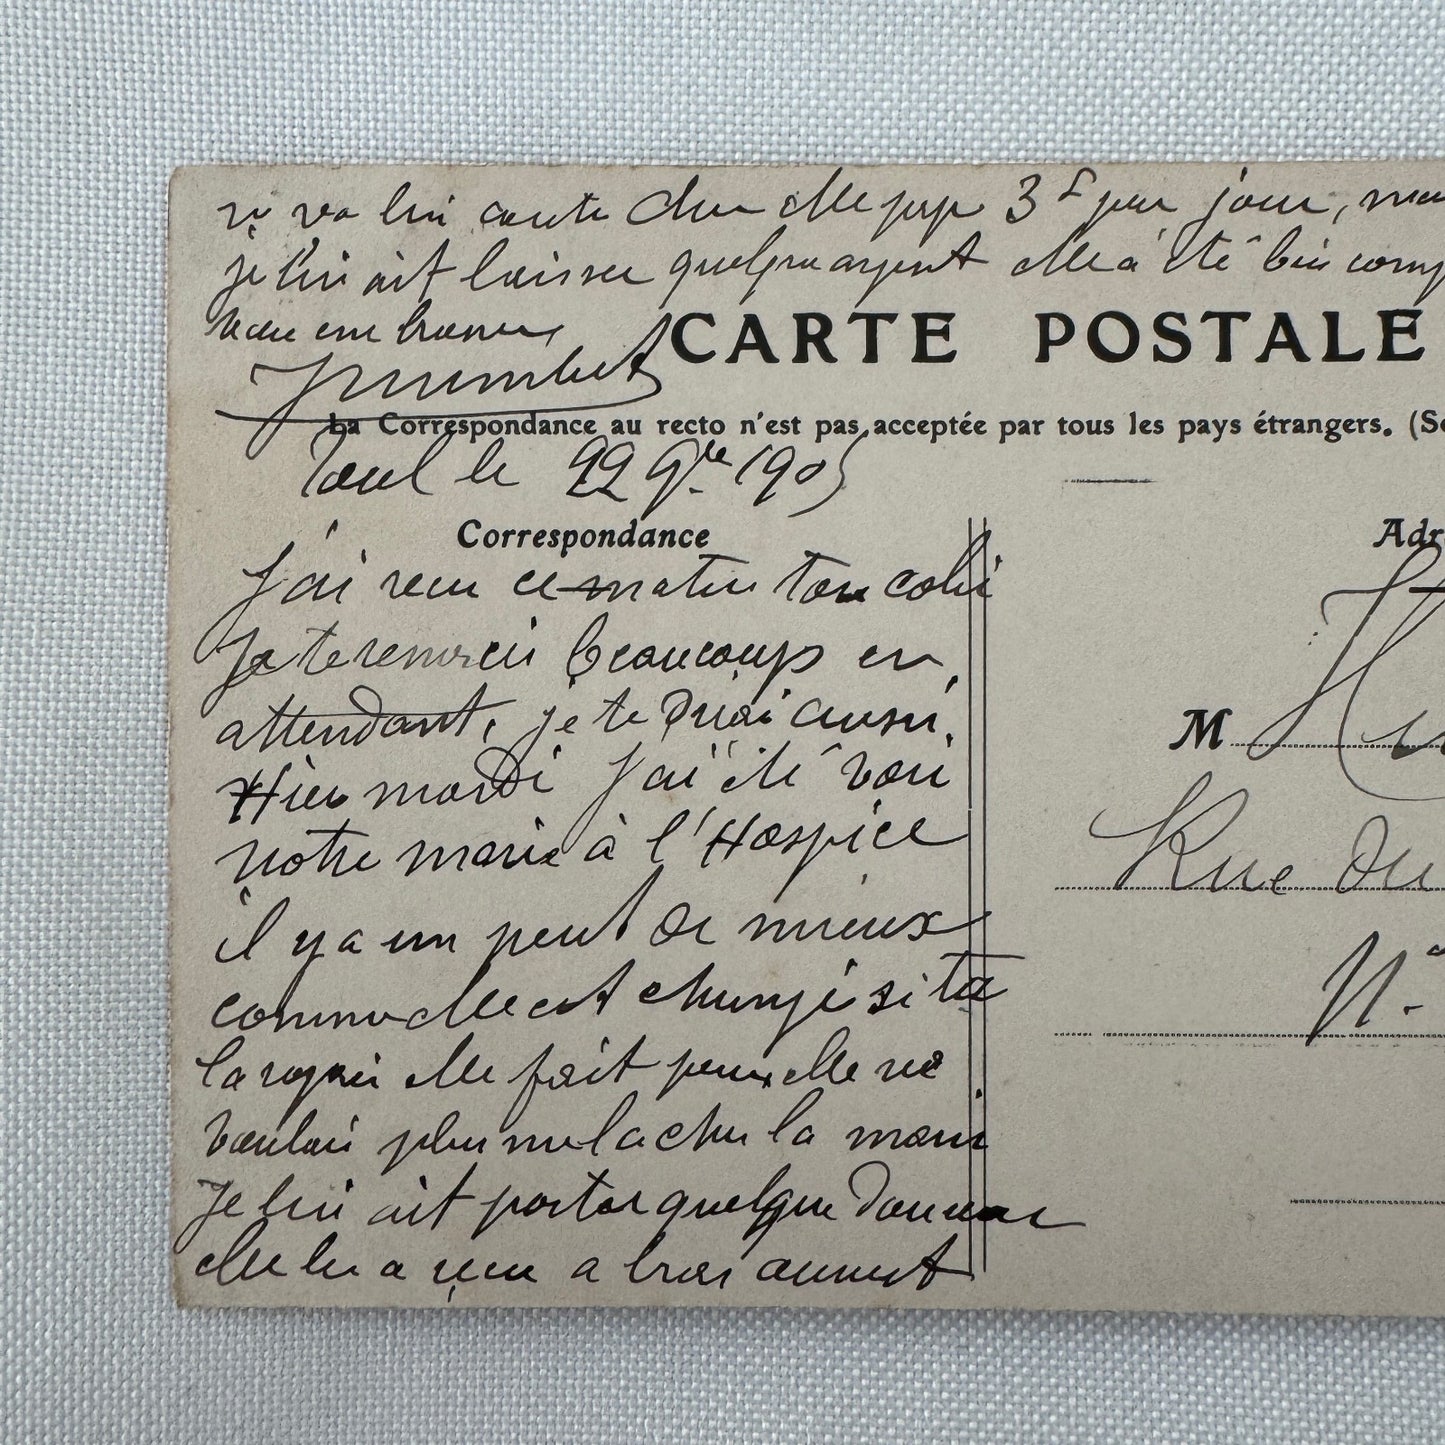 va lui coute 3f par jour,
je lui ait laisser quelque argent elle a été bien
CARTE POSTALE
La Correspondance au recto n'est pas acceptée par tous les pays étrangers. (
Toul le 22 9bre 1905
Correspondance
J'ai recu ce matin ton coli
Je te remerci beaucoup en
attendant, je te aussi.
Hier mardi J'ai été voir
notre marie à l'Hospice
il y a un peut de mieux
comme elle est changé si tu
la voyai elle fait peur, elle ne
voulait plus me lacher la main
Je lui ait porter quelque
elle les a recu a bras ouvert
M
Rue du
N.